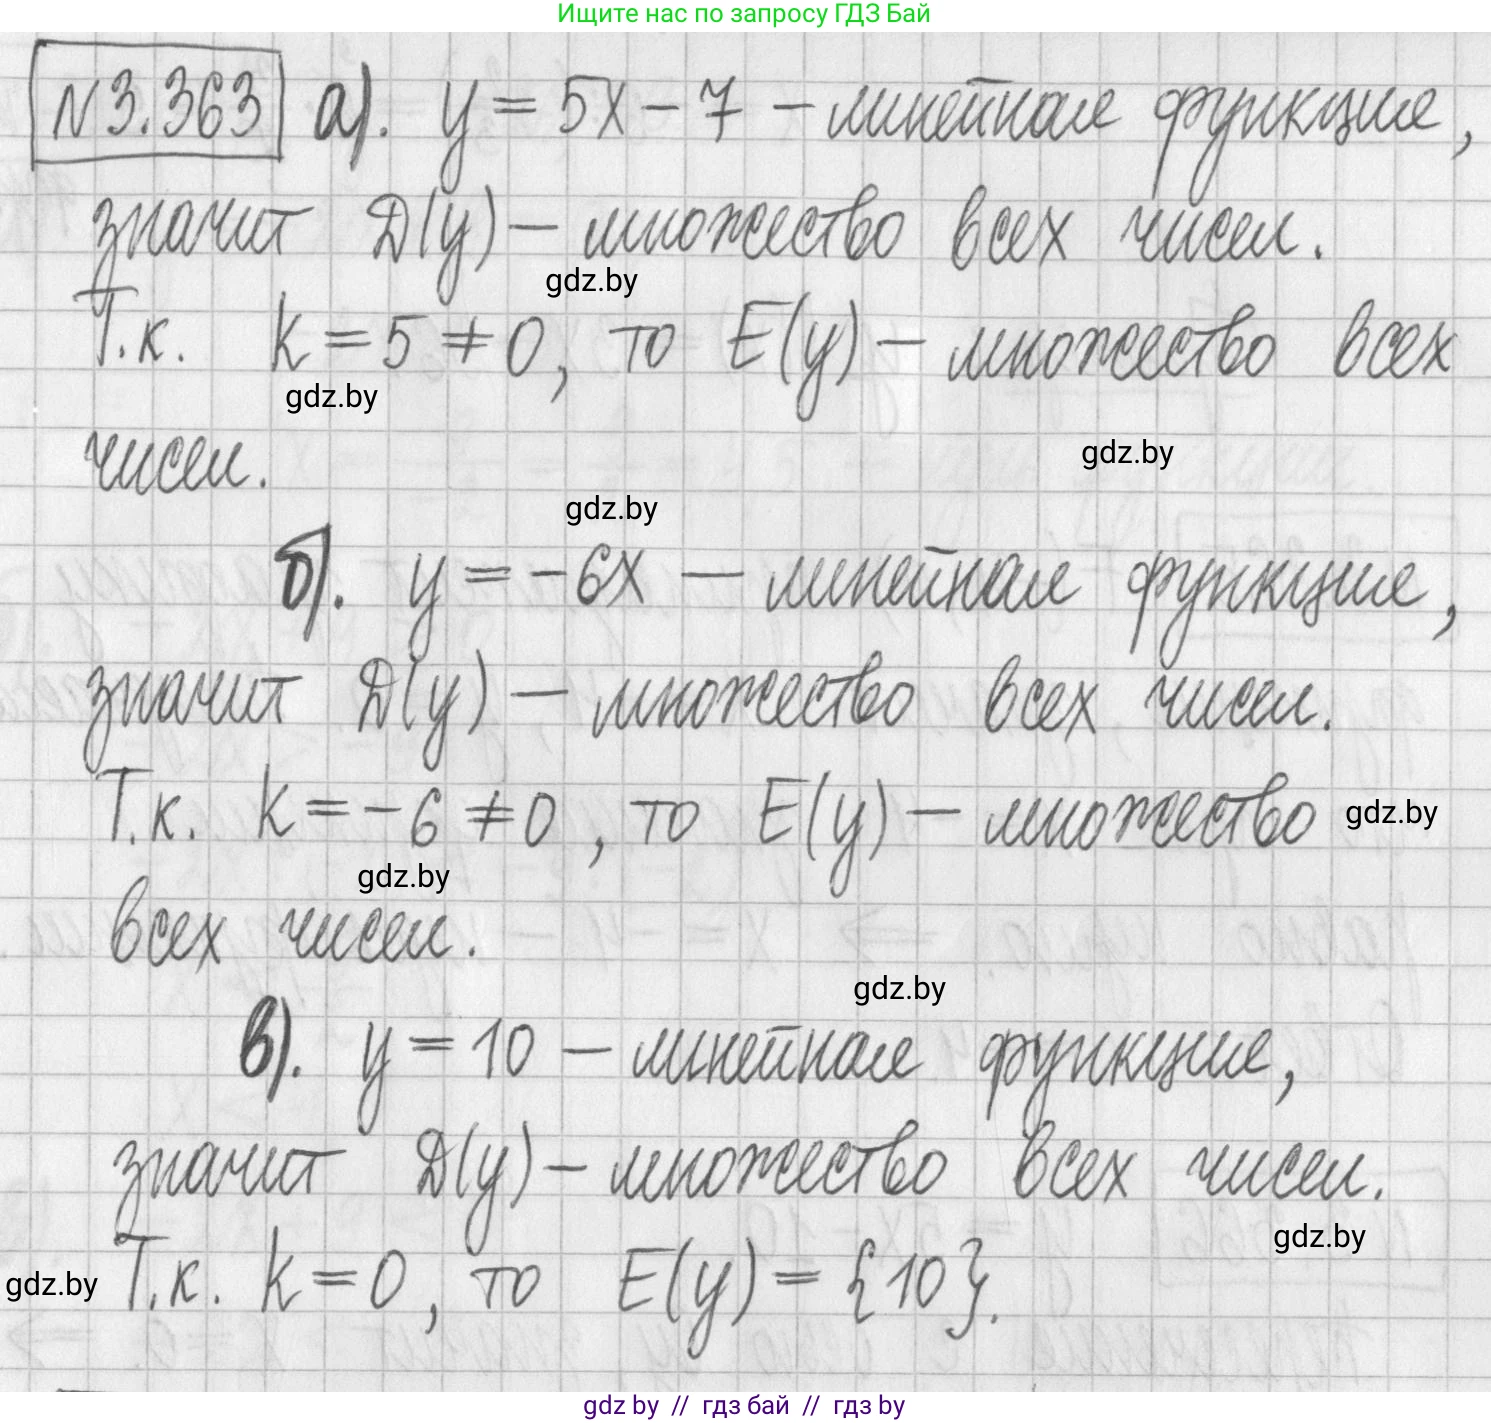 Ищите нас по запросу ГДЗ Бай
N3.363 а). y = 5x - 7 - линейная функция,
значит D(y) - множество всех чисел.
gdz.by
Т.к. k = 5 ≠ 0, то E(y) - множество всех
gdz.by
чисел.
gdz.by
gdz.by
б). y = -6x - линейная функция,
значит D(y) - множество всех чисел.
Т.к. k = -6 ≠ 0, то E(y) - множество
gdz.by
gdz.by
всех чисел.
gdz.by
в). y = 10 - линейная функция,
значит D(y) - множество всех чисел.
gdz.by
Т.к. k = 0, то E(y) = {10}.
gdz.by
gdz.by // гдз бай // гдз by